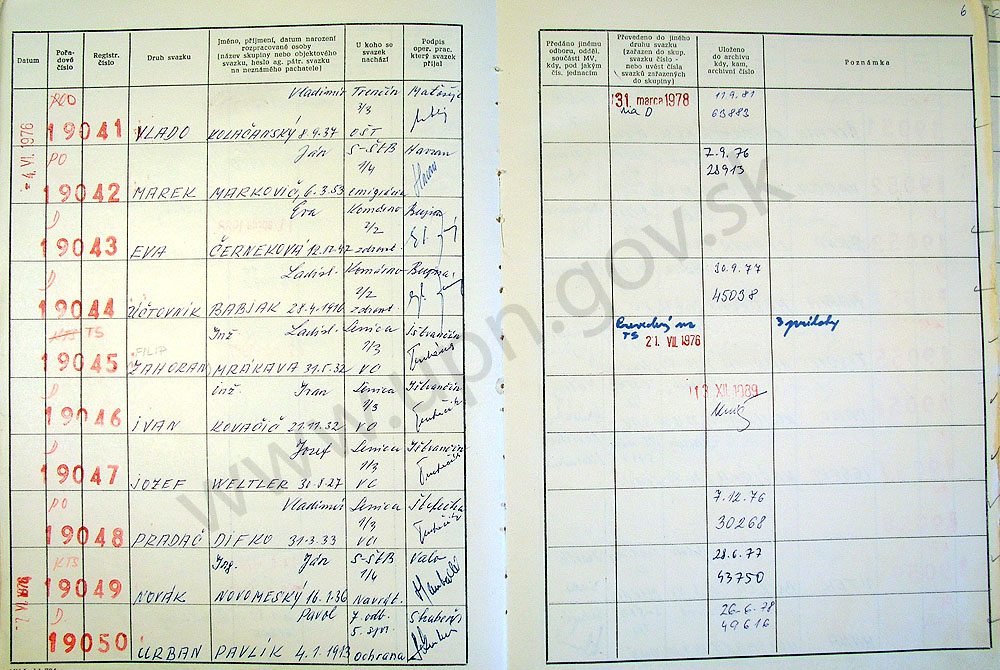 6
Datum
Pořa-
dové
číslo
Registr.
číslo
Druh svazku
Jméno, příjmení, datum narození
rozpracované osoby
(název skupiny nebo objektového
svazku, heslo ag. pátr. svazku
na neznámého pachatele)
U koho se
svazek
nachází
Podpis
oper. prac.
který svazek
přijal
Předáno jinému
odboru, odděl.
součásti MV,
kdy, pod jakým
čís. jednacím
Převedeno do jiného
druhu svazku
(zařazen do skup.
svazku číslo -
nebo uvést čísla
svazků zařazených
do skupiny)
Uloženo
do archivu
kdy, kam,
archivní číslo
Poznámka
4. VI. 1976
Vladimír Trenčín
3/3
19041 VLADO KOLAČANSKÝ 8.9.37 OŠT
31. marca 1978
na D
11.9.81
63883
PO Ján S-ŠtB
1/4
19042 MAREK MARKOVIČ, 6.3.53 emigrácia
7.9.76
28913
D Eva Komárno
2/2
19043 EVA ČERNEKOVA 12.12.47 zdravot.
D Ladisl. Komárno
2/2
19044 ÚČTOVNÍK BABJAK 28.4.1916 zdravot.
30.9.77
45038
KTS TS Inž Ladisl. Senica Ištvančin
1/3
FILIP
19045 ZAHORAN MRÁKAVA 31.5.32 VC
Prevedený na
TS 21 VII. 1976
3 prílohy
D inž. Ivan Senica Ištvančin
1/3
19046 IVAN KOVAČIČ 21.11.32 VC
13 XII 1989
D Jozef Senica Ištvančin
1/3
19047 JOZEF WELTLER 31.8.27 VC
PO Vladimír Senica
1/3
19048 PRADAČ DIFKO 31.3.33 VC
7.12.76
30268
KTS Ing. Ján S-ŠtB Vala
1/4
19049 NOVÁK NOVOMESKÝ 16.1.36 Navrát.
28.6.77
43750
7 VI. 1976
D. Pavol 7. odb.
5. spr.
19050 URBAN PAVLÍK 4.1.1913 ochrana
26-6-78
49616
www.upn.gov.sk